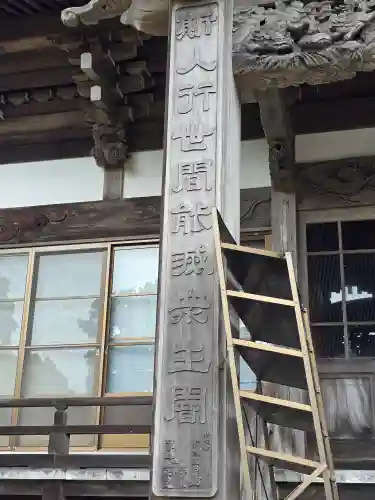 斯人行世間能滅衆生闇